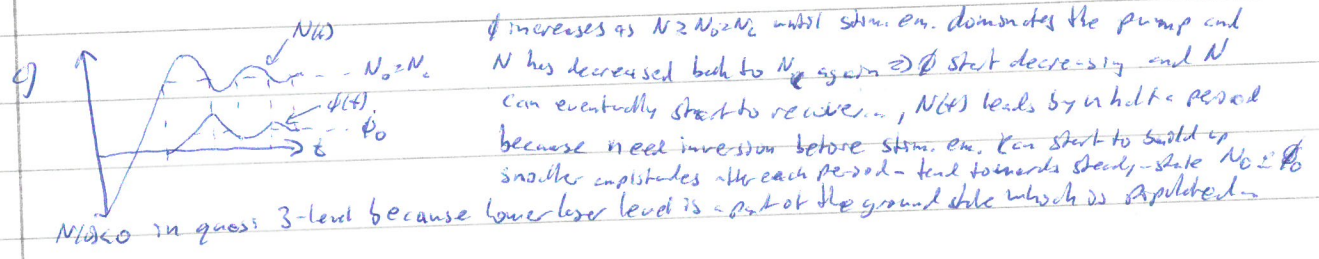 c)
N(t)
N₀=N_c
φ(t)
φ₀
t
φ increases as N≥N₀=N_c until stim. em. dominates the pump and
N has decreased back to N_c again => φ start decreasing and N
can eventually start to recover..., N(t) leads by half a period
because need inversion before stim. em. can start to build up
smaller amplitudes after each period - tend towards steady-state N₀ & φ₀
N(0)<0 in quasi 3-level because lower laser level is a part of the ground state which is populated.